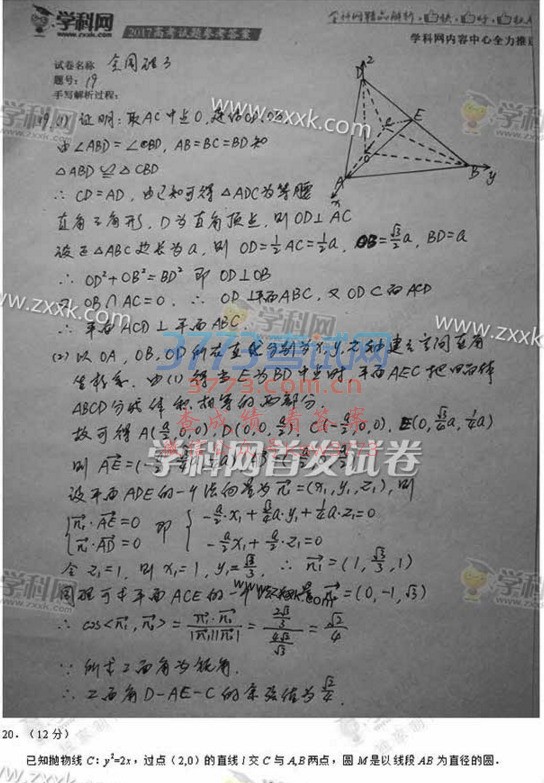 学科网
www.zxxk.com
2017高考试题参考答案
全科网精品解析
学科网内容中心全力推
试卷名称 全国卷3
题号: 19
手写解析过程:
19.(1) 证明: 取AC中点O, 连结OB, OD,
由∠ABD = ∠CBD, AB=BC=BD知
△ABD ≌ △CBD
∴ CD=AD, 由已知可得 △ADC为等腰
直角三角形, D为直角顶点, 则OD⊥AC
设正△ABC边长为a, 则 OD=½AC=½a, OB=√3/2 a, BD=a
∴ OD²+OB²=BD² 即 OD⊥OB
又 OB∩AC=O, ∴ OD⊥平面ABC, 又 OD⊂面ACD
∴ 平面ACD⊥平面ABC.
(2) 以 OA, OB, OD 所在直线分别为x, y, z轴建立空间直角
坐标系, 由(1)得 E为BD中点时 平面AEC把四面体
ABCD分成体积相等的两部分,
故可得 A(a/2,0,0), D(0,0,a/2), C(-a/2,0,0), E(0,√3/4 a,¼a)
则 AE=(-
设平面ADE的一个法向量为n₁=(x₁,y₁,z₁), 则
{n₁·AE=0 即 { -a/2·x₁+√3/4 a·y₁+¼a·z₁=0
{n₁·AD=0 -a/2 x₁+a/2·z₁=0
令 z₁=1, 则 x₁=1, y₁=√3/3, ∴ n₁=(1, √3/3, 1)
同理可求平面ACE的一个法向量 n₂=(0,-1,√3)
∴ cos<n₁,n₂>= n₁·n₂/|n₁||n₂| =
= √2/4
∵ 所求二面角为锐角.
∴ 二面角D-AE-C的余弦值为√2/4.
D
z
C
E
O
A
x
B
y
3773考试网
3773.com.cn
查成绩 看答案
学科网首发试卷
20. (12分)
已知抛物线 C: y²=2x, 过点 (2,0) 的直线 l 交 C 与 A,B 两点, 圆 M 是以线段 AB 为直径的圆.